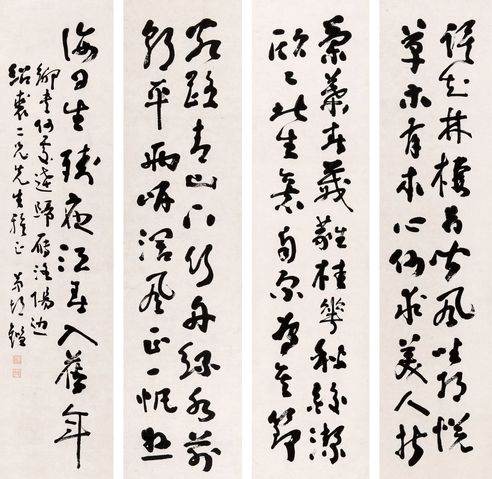 誰知林棲者聞風坐相悅
草木有本心何求美人折
蘭葉春葳蕤桂華秋皎潔
欣欣此生意自爾為佳節
客路青山下行舟綠水前
潮平兩岸闊風正一帆懸
海日生殘夜江春入舊年
鄉書何處達歸雁洛陽邊
紹裘二兄先生雅正 弟胡鑑